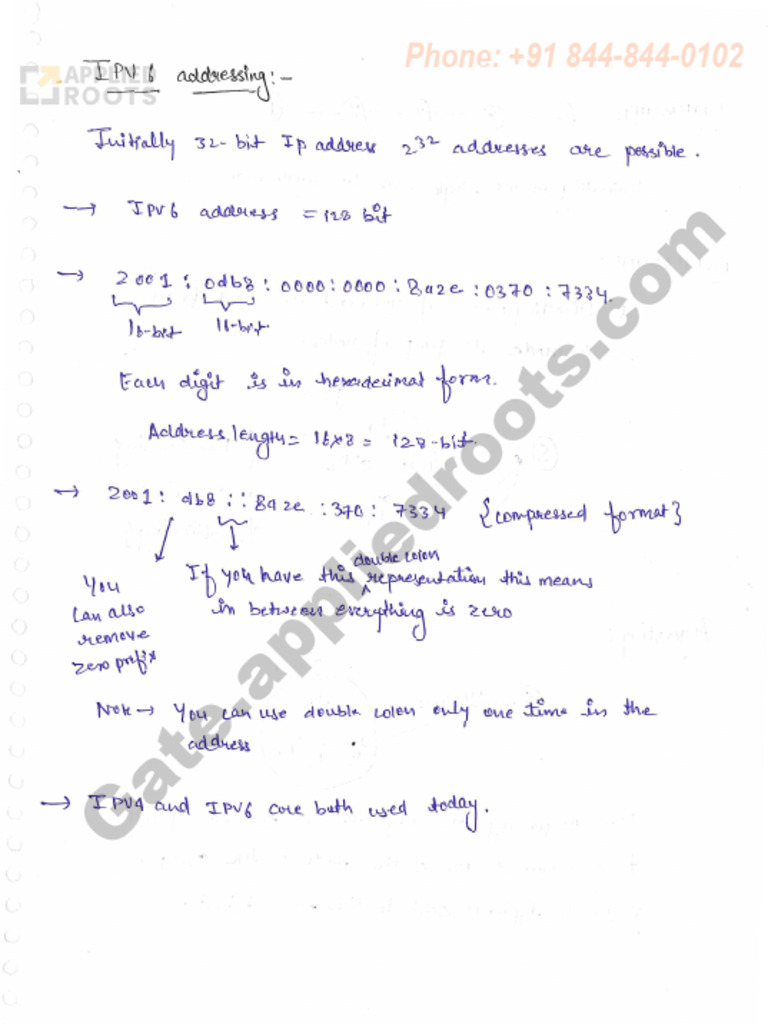 Phone: +91 844-844-0102
APPLIED
ROOTS
IPV6 addressing:-
Initially 32-bit Ip address 2^32 addresses are possible.
→ IPV6 address = 128 bit
→ 2001 : 0db8 : 0000 : 0000 : 8a2e : 0370 : 7334.
16-bit 16-bit
Each digit is in hexadecimal form.
Address length = 16x8 = 128-bit.
→ 2001 : db8 : : 8a2e : 370 : 7334 {compressed format}
double colon
If you have this ^ representation this means
in between everything is zero
You
can also
remove
zero prefix
Note → You can use double colon only one time in the
address
→ IPV4 and IPV6 are both used today.
Gate.appliedroots.com